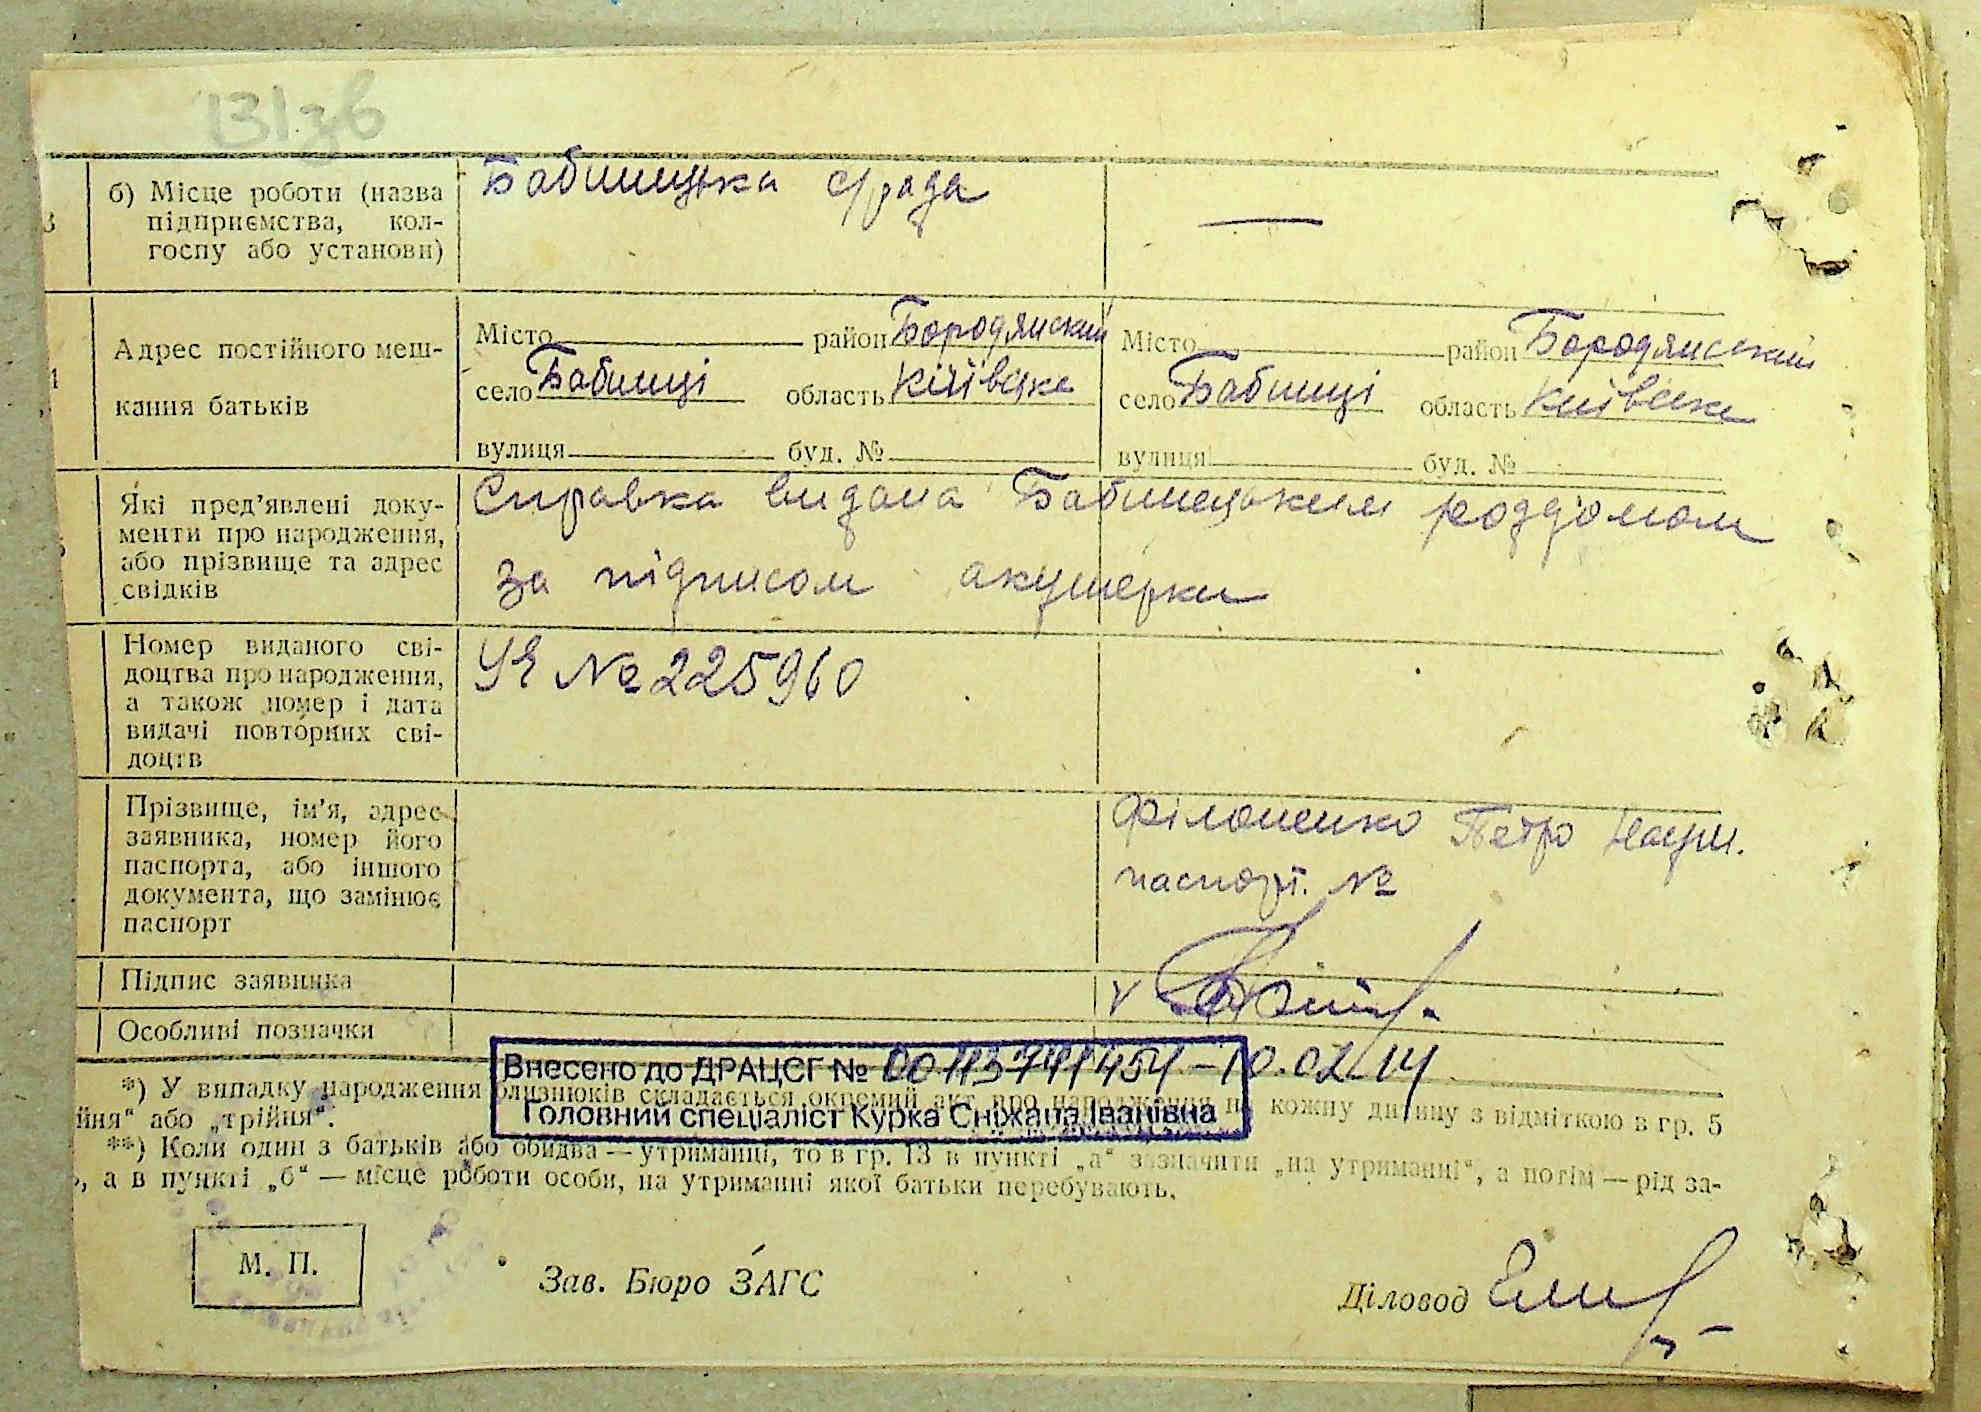 131зв
б) Місце роботи (назва підприємства, колгоспу або установи)
Бабинецька с/рада
—
Адрес постійного мешкання батьків
Місто район Бородянский
село Бабинці область Київське
вулиця буд. №
Місто район Бородянский
село Бабинці область Київське
вулиця буд. №
Які пред'явлені документи про народження, або прізвище та адрес свідків
Справка видана Бабинецьким роддомом
за підписом акушерки
Номер виданого свідоцтва про народження, а також номер і дата видачі повторних свідоцтв
УЯ № 225960
Прізвище, ім'я, адрес заявника, номер його паспорта, або іншого документа, що замінює паспорт
Філоненко Петро
паспорт. №
Підпис заявника
Особливі позначки
Внесено до ДРАЦСГ № 00113741454 – 10.02.14
Головний спеціаліст Курка Сніжана Іванівна
*) У випадку народження близнюків складається окремий акт про народження на кожну дитину з відміткою в гр. 5
йня" або „трійня".
**) Коли один з батьків або обидва — утриманці, то в гр. 13 в пункті „а" зазначити „на утриманні", а потім — рід за-
, а в пункті „б" — місце роботи особи, на утриманні якої батьки перебувають.
М. П.
Зав. Бюро ЗАГС
Діловод